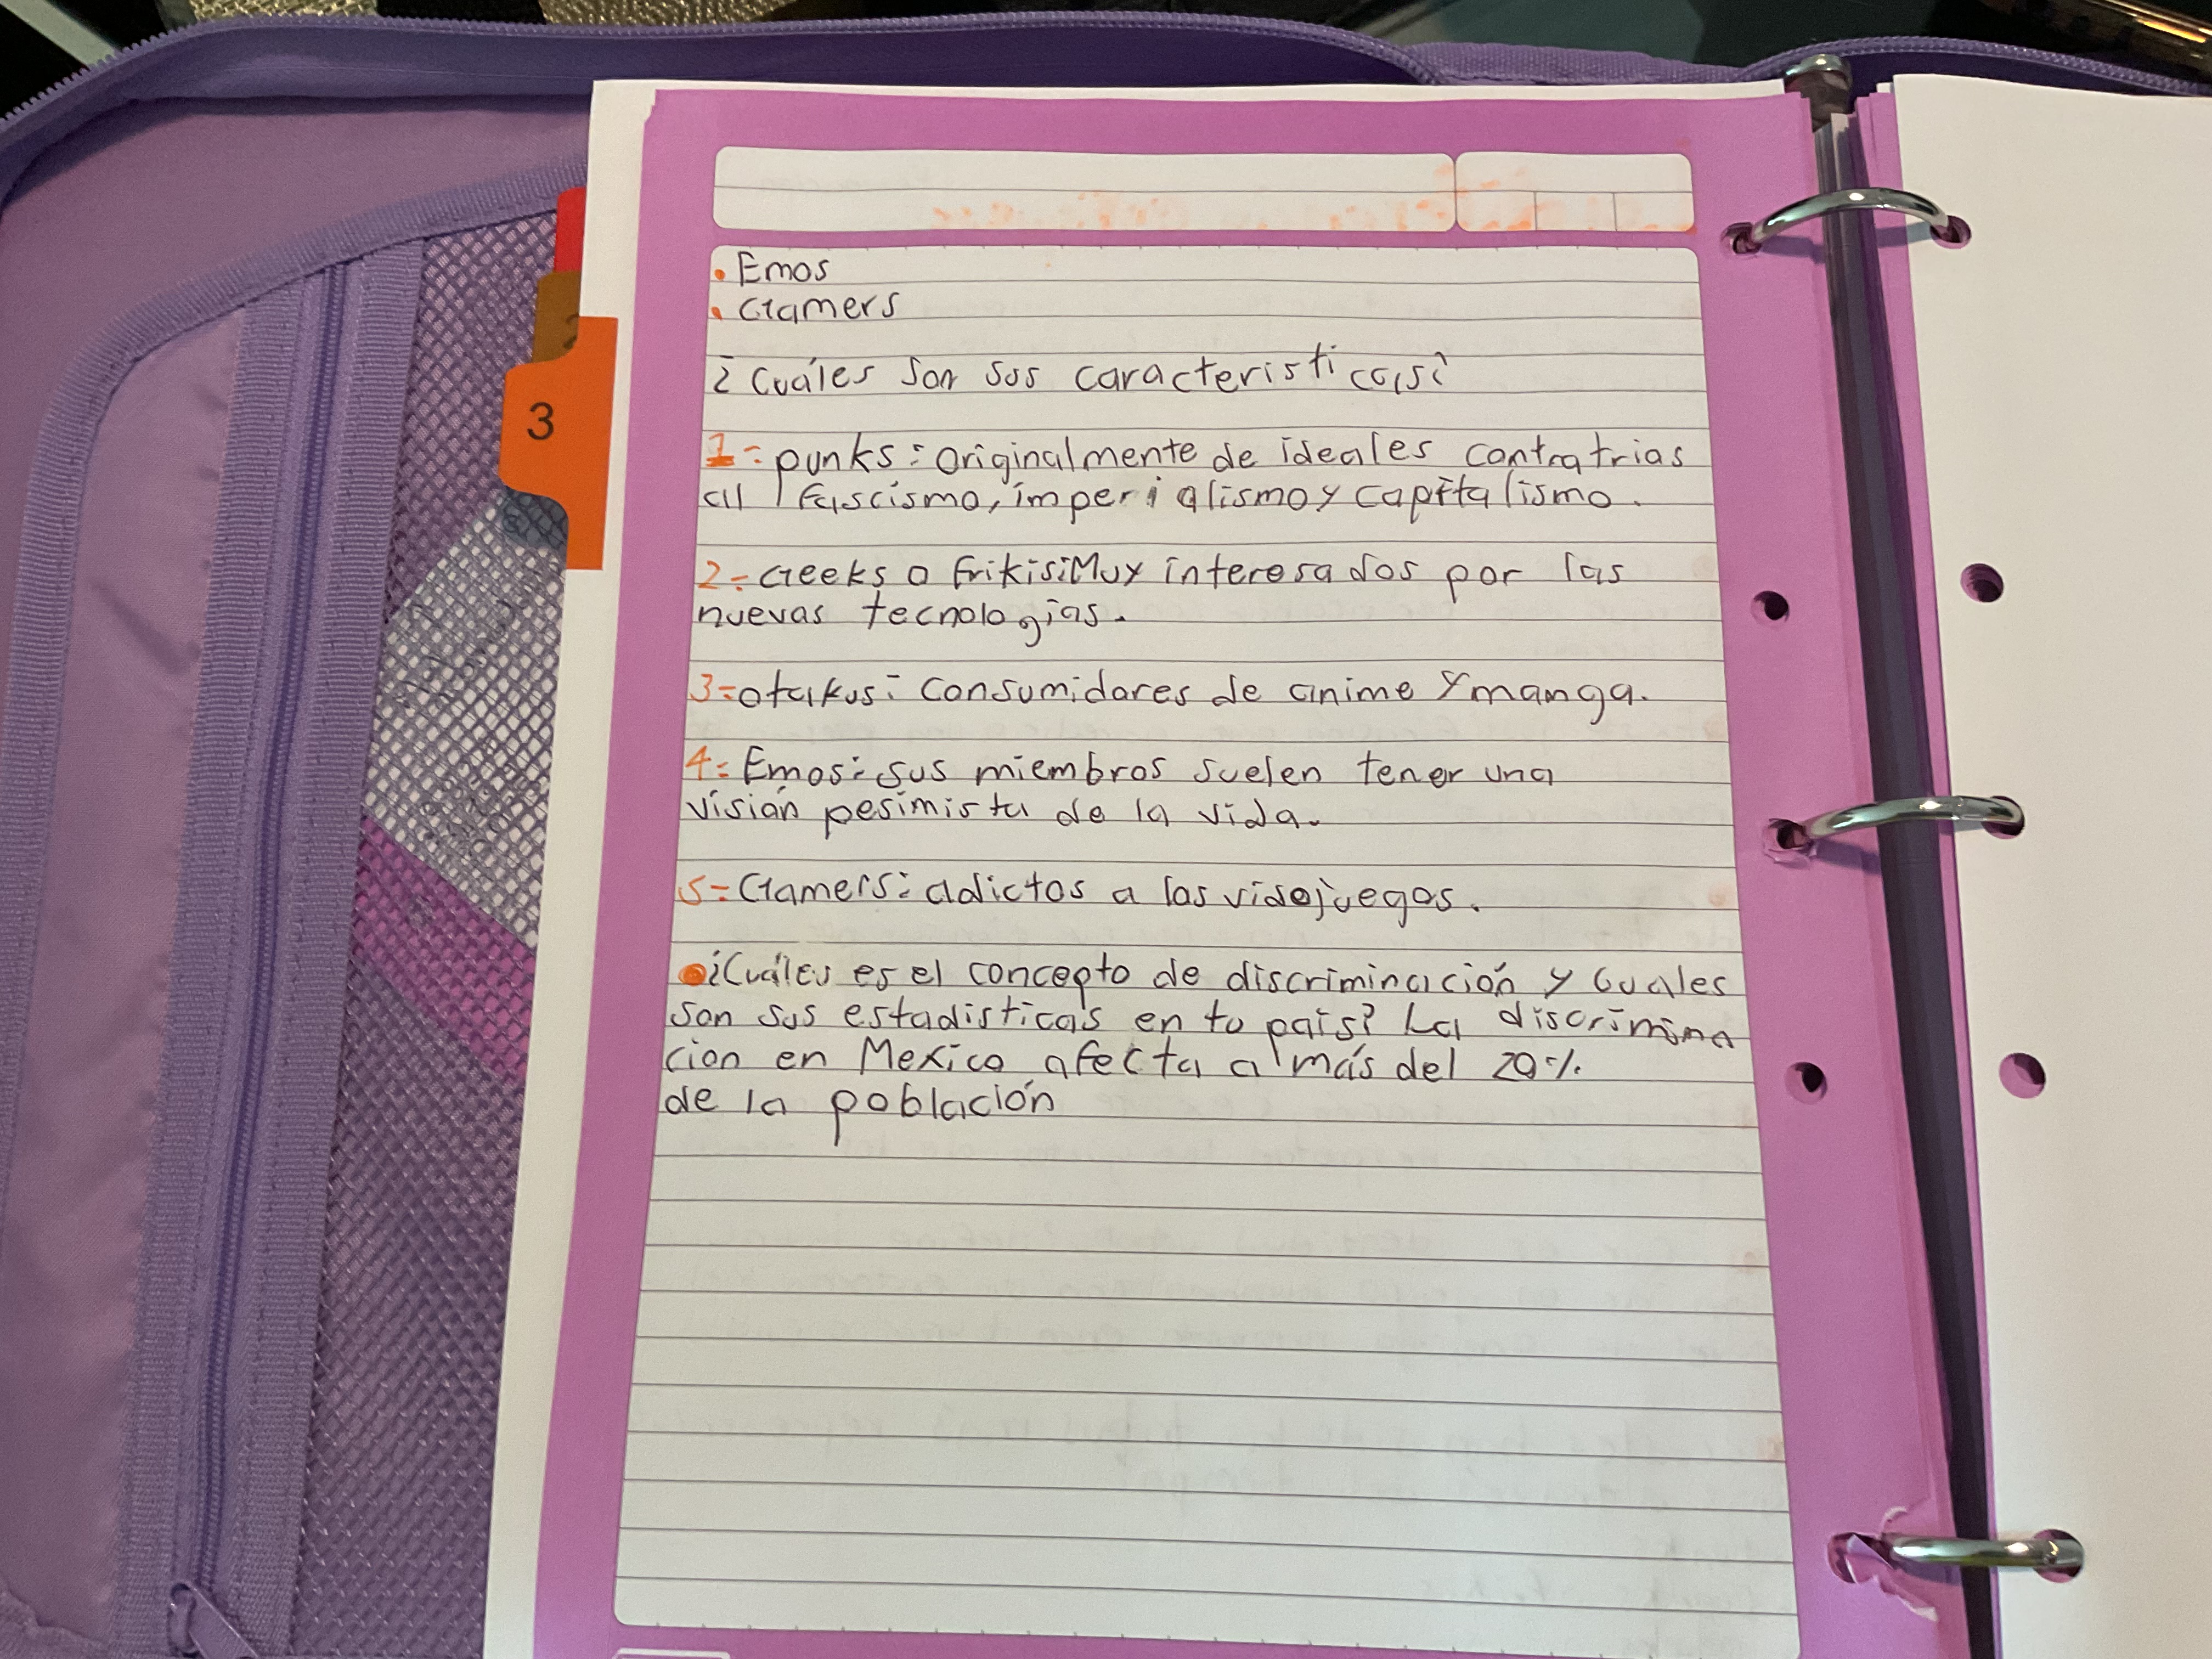 • Emos
• Gamers
¿Cuáles son sus caracteristicas?
1= punks: originalmente de ideales contratrias
al fascismo, imperialismo y capitalismo.
2= Geeks o frikis: Muy interesados por las
nuevas tecnologias.
3= otakus: consumidores de anime y manga.
4= Emos: sus miembros suelen tener una
visión pesimista de la vida.
5= Gamers: adictos a los videojuegos.
• ¿Cuáles es el concepto de discriminación y cuales
son sus estadísticas en tu país? La discrimina
cion en Mexico afecta a más del 20%
de la población
3
2